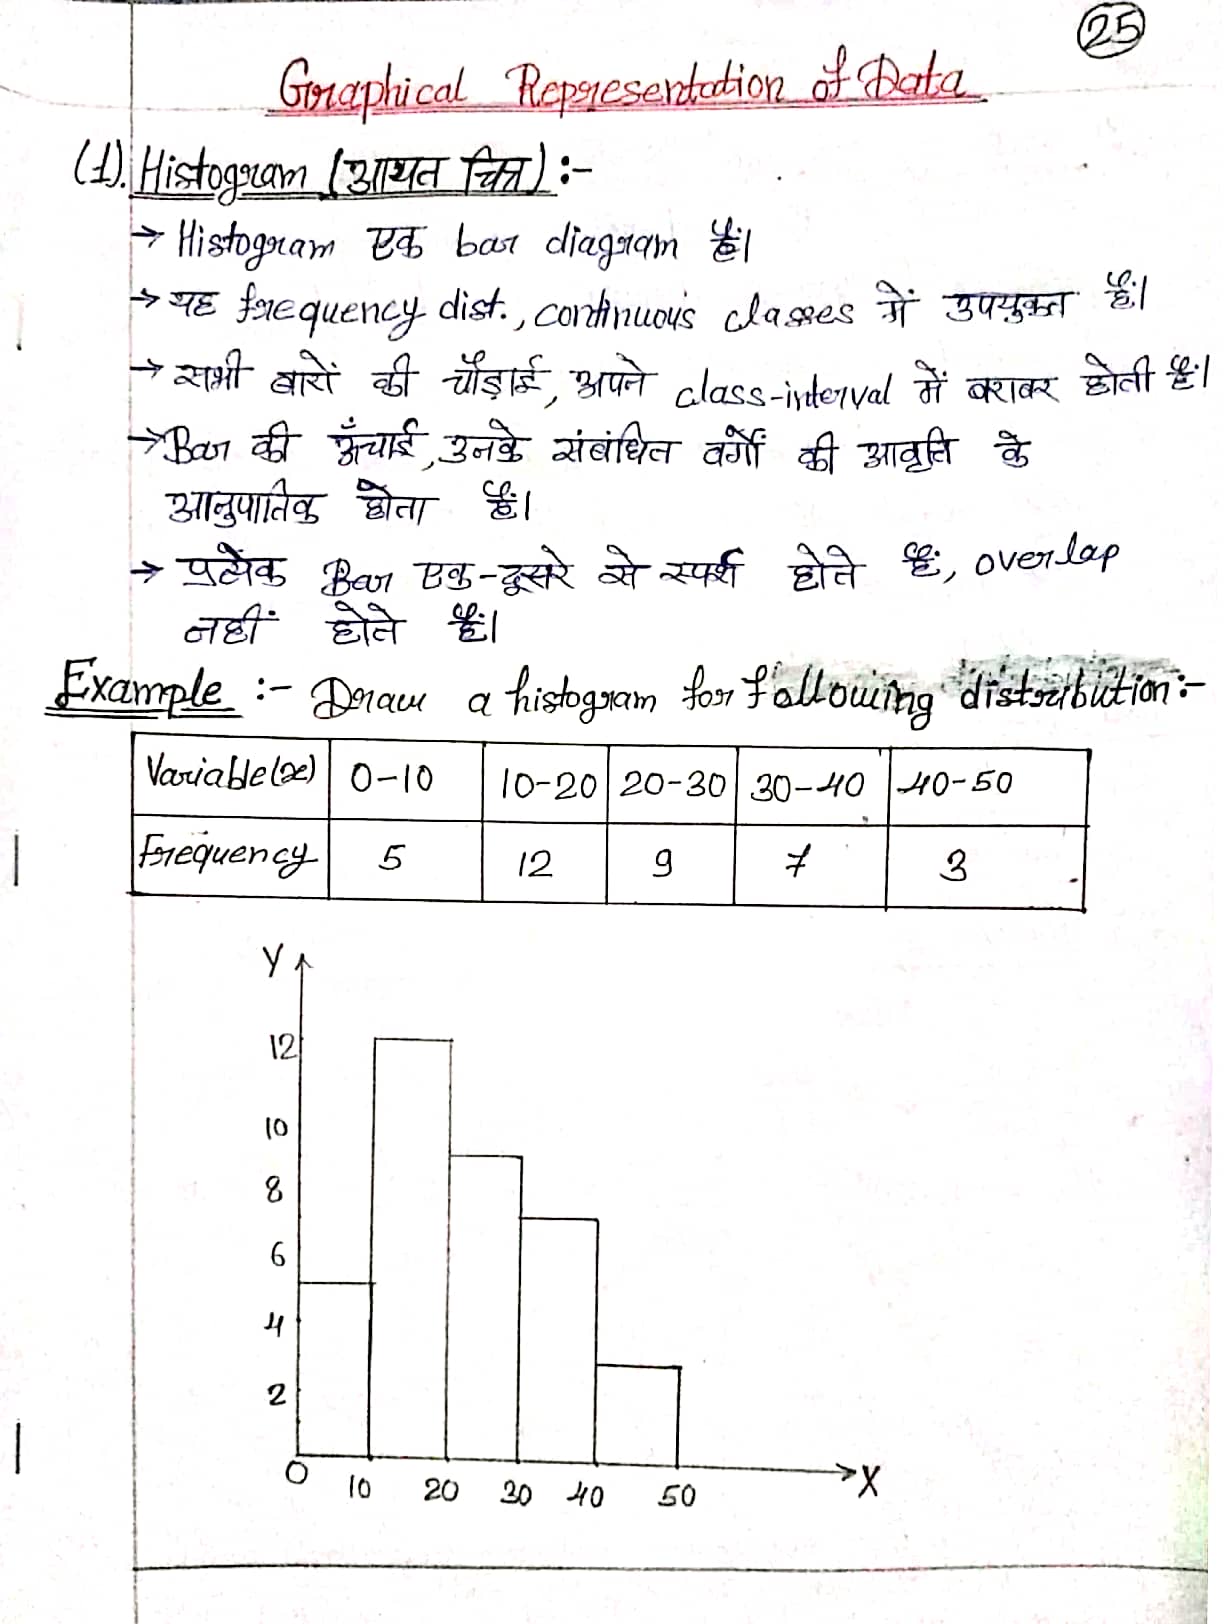 25
Graphical Representation of Data
(1). Histogram (आयत चित्र) :-
→ Histogram एक bar diagram है।
→ यह frequency dist., continuous classes में उपयुक्त है।
→ सभी बारों की चौड़ाई, अपने class-interval में बराबर होती है।
→ Bar की ऊँचाई, उनके संबंधित वर्गों की आवृति के
आनुपातिक होता है।
→ प्रत्येक Bar एक-दूसरे से स्पर्श होते है, overlap
नहीं होते है।
Example :- Draw a histogram for following distribution:-
Variable(x) 0-10 10-20 20-30 30-40 40-50
Frequency 5 12 9 7 3
Y
12
10
8
6
4
2
0 10 20 30 40 50 X